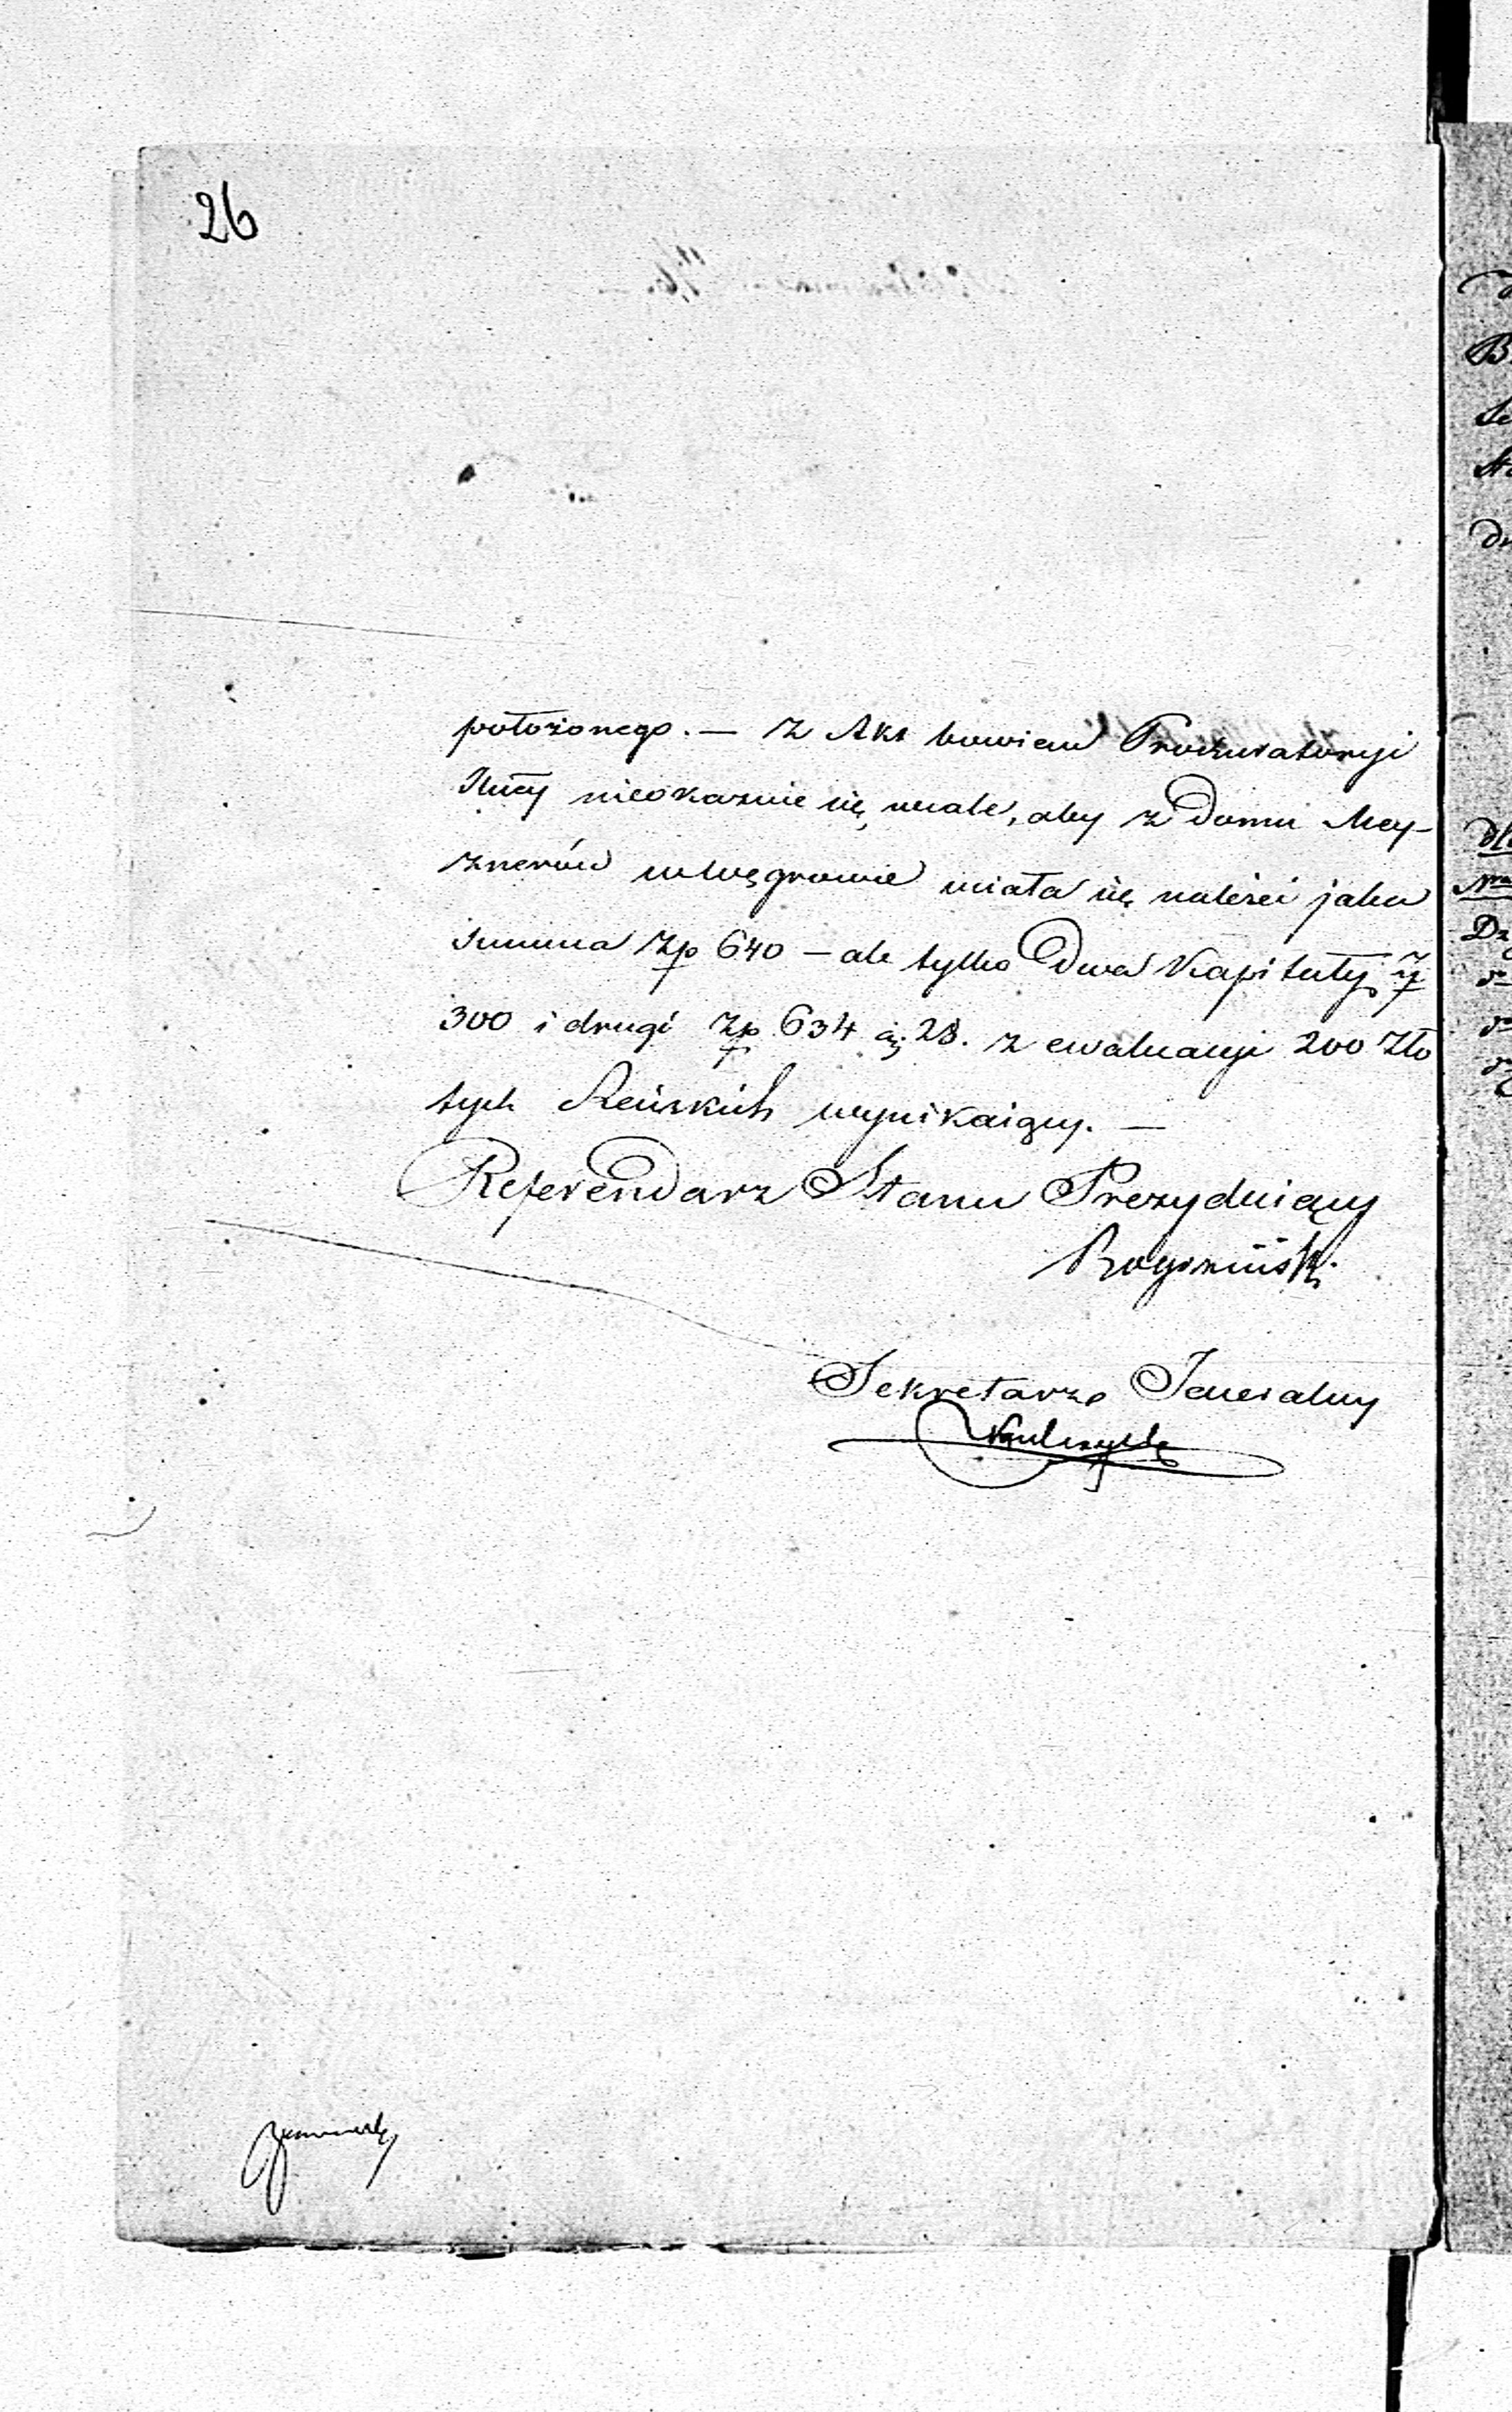 26
położonego. — Z Akt bowiem Prokuratoryi
nieokazuie się wcale, aby z Domu Mey-
znerów w Węgrowie miała się należeć jaka
summa Zp 640 — ale tylko Dwa Kapitały
300 i drugi Zp 634 gr. 28. z ewaluacyi 200 Zło
tych Reńskich wynikaiący. —
Referendarz Stanu Prezyduiący
Sekretarz Jeneralny